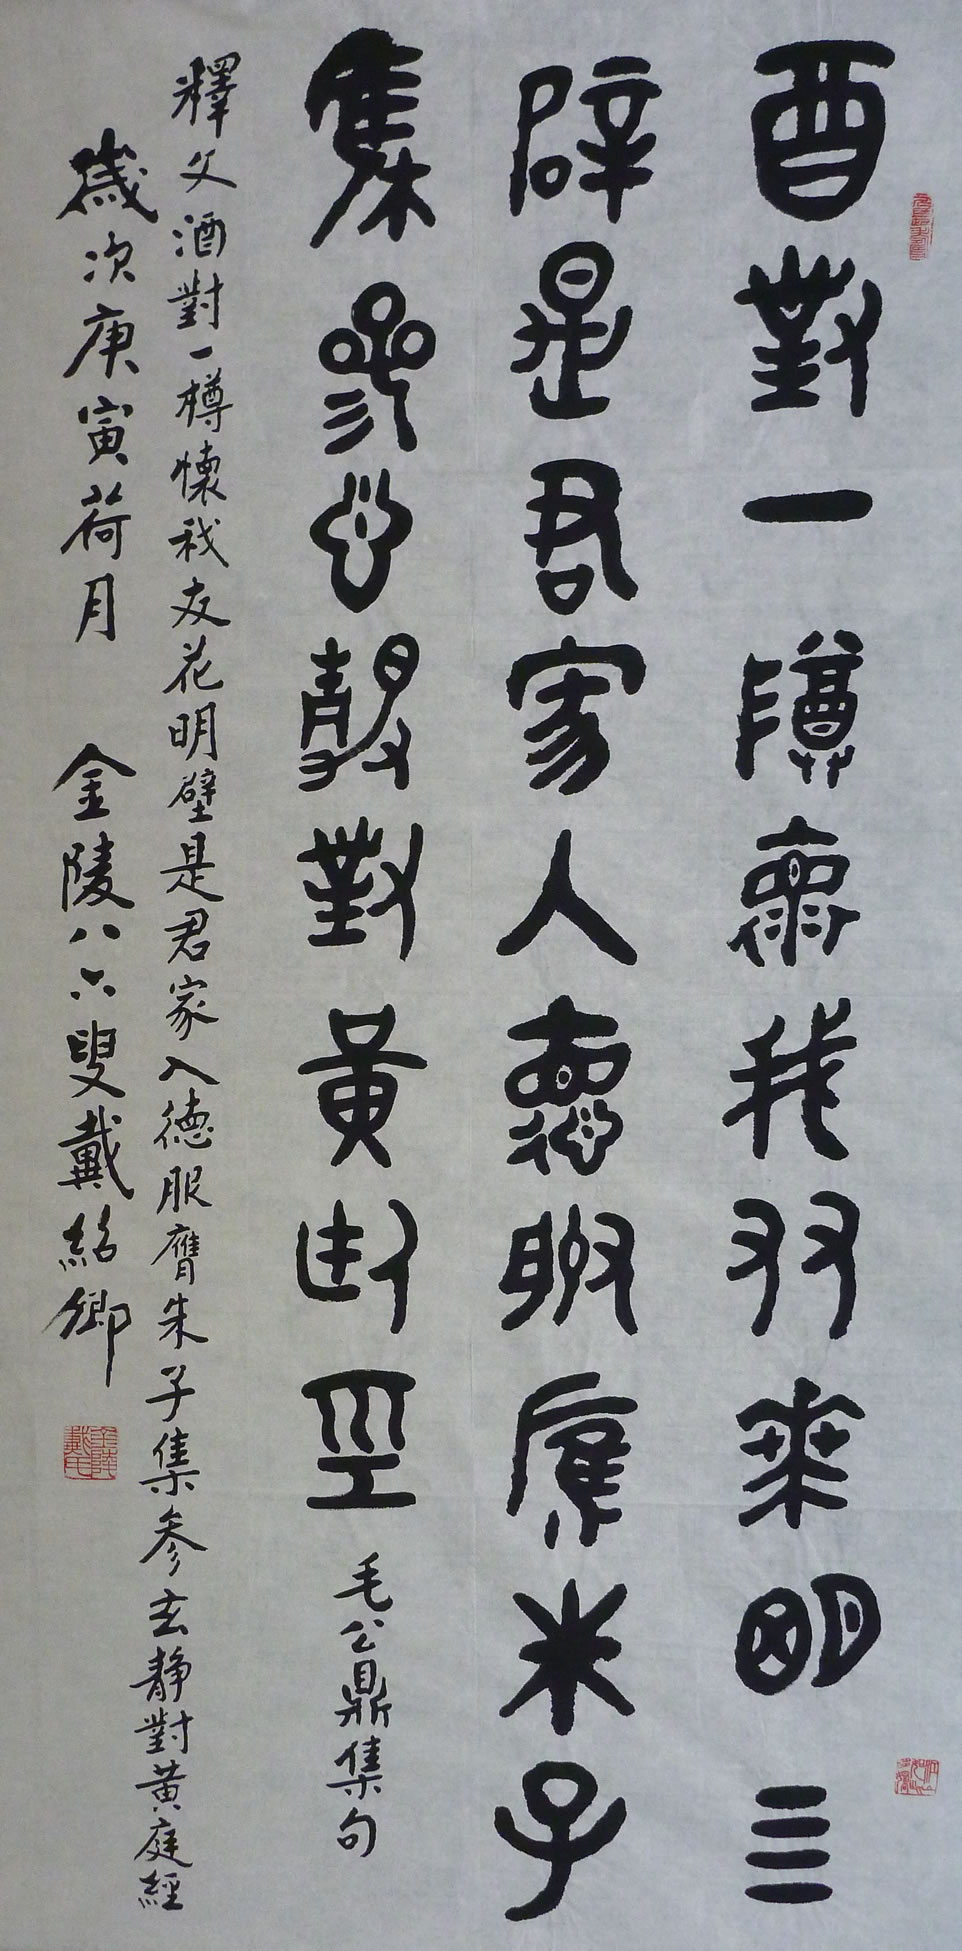 酉對一尊褱我友華明三
辟是君家入德服膺朱子
集參心靜對黃庭巠
毛公鼎集句
釋文酒對一樽懷我友花明壁是君家入德服膺朱子集參玄靜對黃庭經
歲次庚寅荷月 金陵八六叟戴紹卿